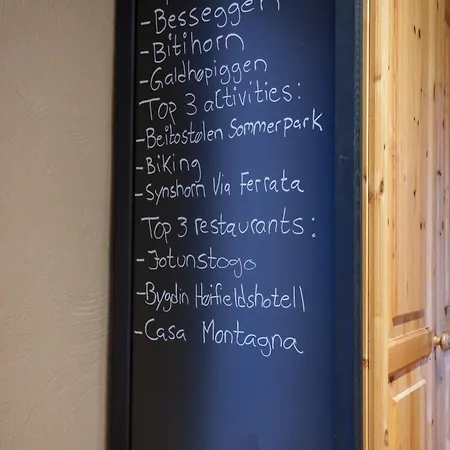 -Besseggen
-Bitihorn
-Galdhøpiggen
Top 3 activities:
-Beitostølen Sommerpark
-Biking
-Synshorn Via Ferrata
Top 3 restaurants:
-Jotunstogo
-Bygdin Høifieldshotell
-Casa Montagna